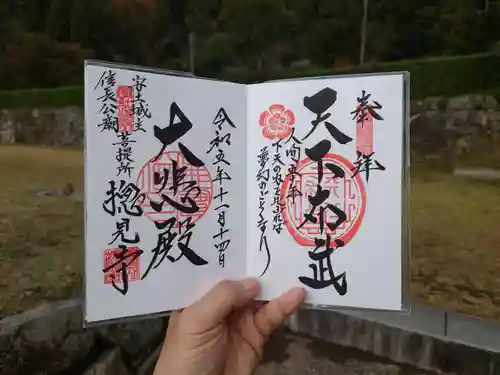 奉拝
天下布武
人間五十年
下天の内をくらぶれば
夢幻のごとくなり
令和五年十一月十四日
大悲殿
安土城主
信長公廟
菩提所
摠見寺